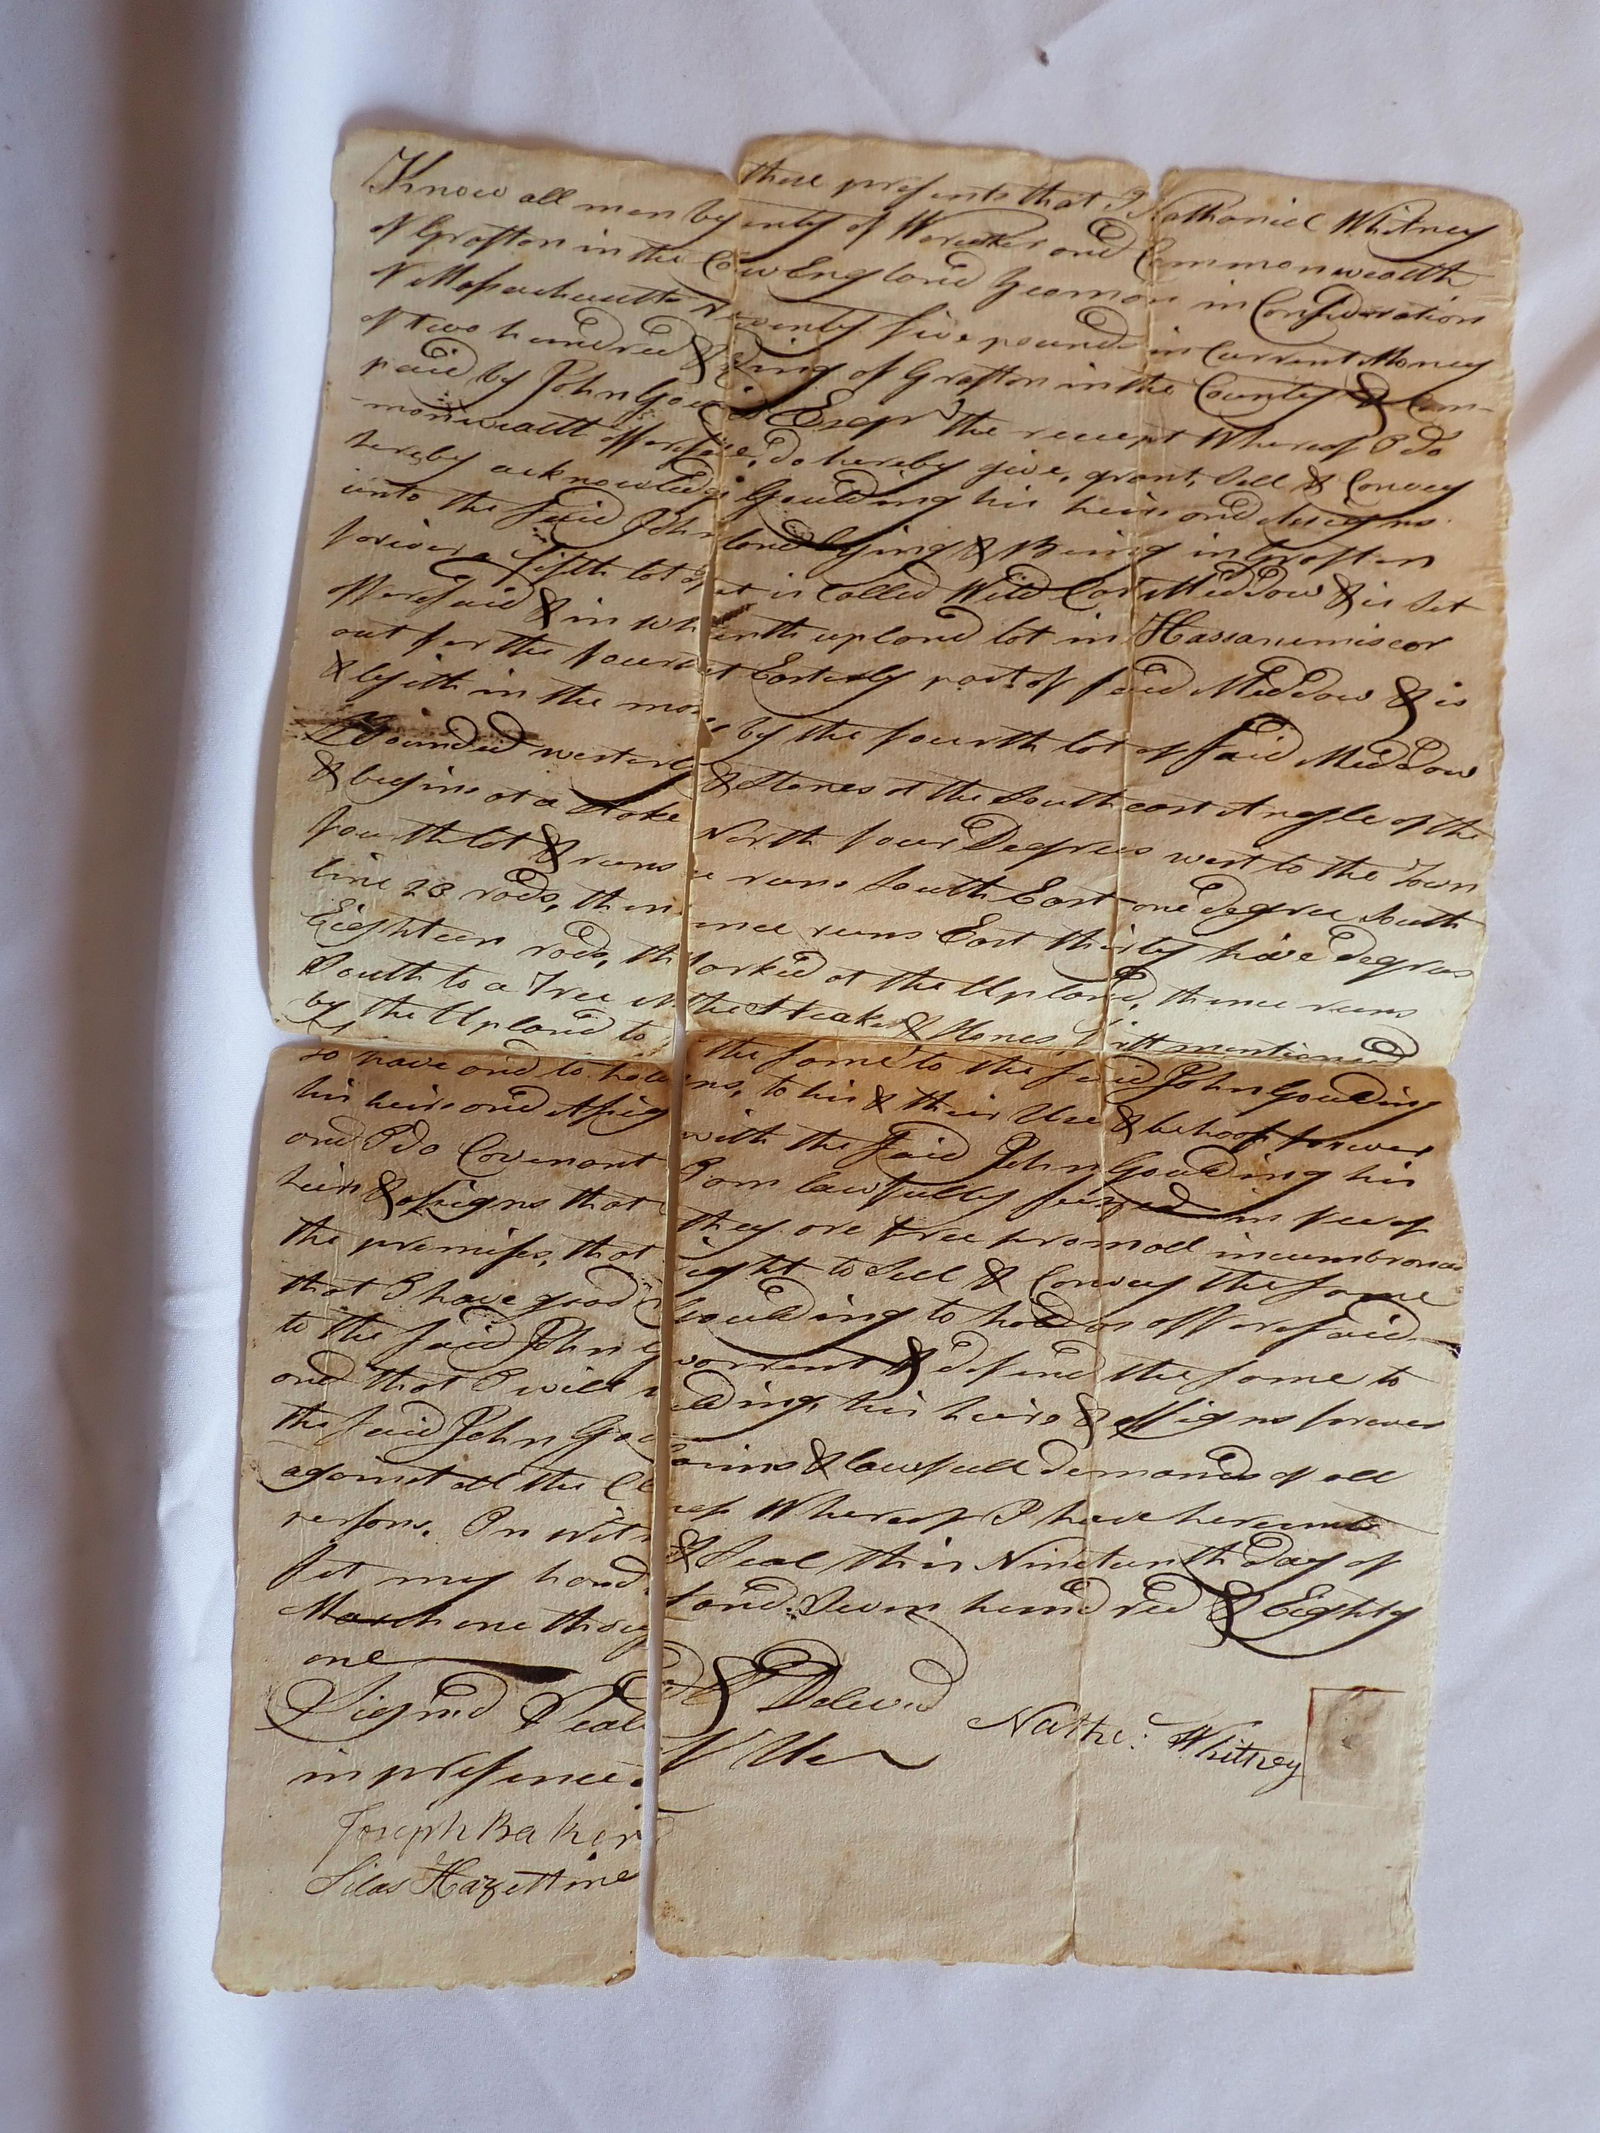 Know all men by these presents that I Nathaniel Whitney
of Grafton in the County of Worcester and Commonwealth
of Massachusetts New England Yeoman in Consideration
of two hundred & Seventy five pounds in Current Money
paid by John Goulding of Grafton in the County & Com-
monwealth afforesaid Esqr the receipt Whereof I do
hereby acknowledge, do hereby give, grant, Sell & Convey
unto the Said John Goulding his heirs and Assigns
forever a fifth lot of land lying & Being in Grafton
afforesaid & in what is Called Wild Cat Meddow & is Set
out for the fourteenth upland lot in Hassanamiscor
& lyeth in the most Easterly part of said Meddow & is
Bounded westerly by the fourth lot of Said Meddow
& begins at a Stake & Stones at the South east Angle of the
fourth lot & runs North four Degrees west to the Town
line 28 rods, thence runs South East one degree South
Eighteen rods, thence runs East thirty five degrees
South to a Tree Marked at the Upland, thence runs
by the Upland to the Steake & Stones, first mentioned
to have and to hold the same to the said John Goulding
his heirs and Assigns, to his & their Use & behoof forever
and I do Covenant with the Said John Goulding his
heirs & assigns that I am lawfully seized in fee of
the premises, that they are free from all incumbrances
that I have good right to Sell & Convey the same
to the said John Goulding to hold as afforesaid
and that I will warrent & defend the same to
the said John Goulding, his heirs & Assigns forever
against all the Claims & lawfull demands of all
persons. In witness Whereof I have hereunto
set my hand & Seal this Nineteenth Day of
March one thousand Seven hundred & Eighty
one
Signed Sealed & Deleverd
in presence of Us
Nathl: Whitney
Joseph Baker
Silas Hazeltine